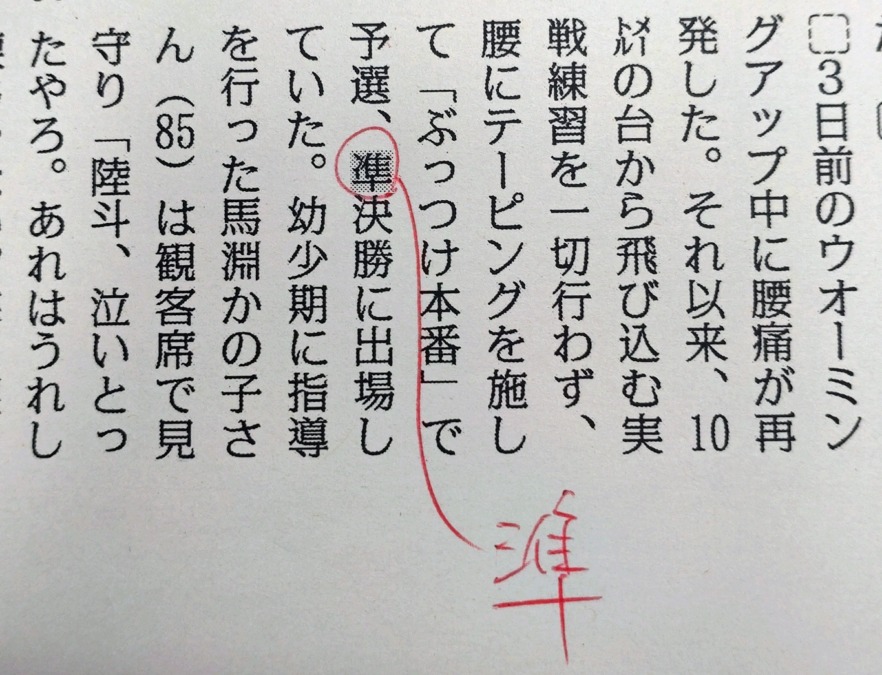 3日前のウオーミン
グアップ中に腰痛が再
発した。それ以来、10
㍍の台から飛び込む実
戦練習を一切行わず、
腰にテーピングを施し
て「ぶっつけ本番」で
予選、凖決勝に出場し
ていた。幼少期に指導
を行った馬淵かの子さ
ん(85)は観客席で見
守り「陸斗、泣いとっ
たやろ。あれはうれし
準